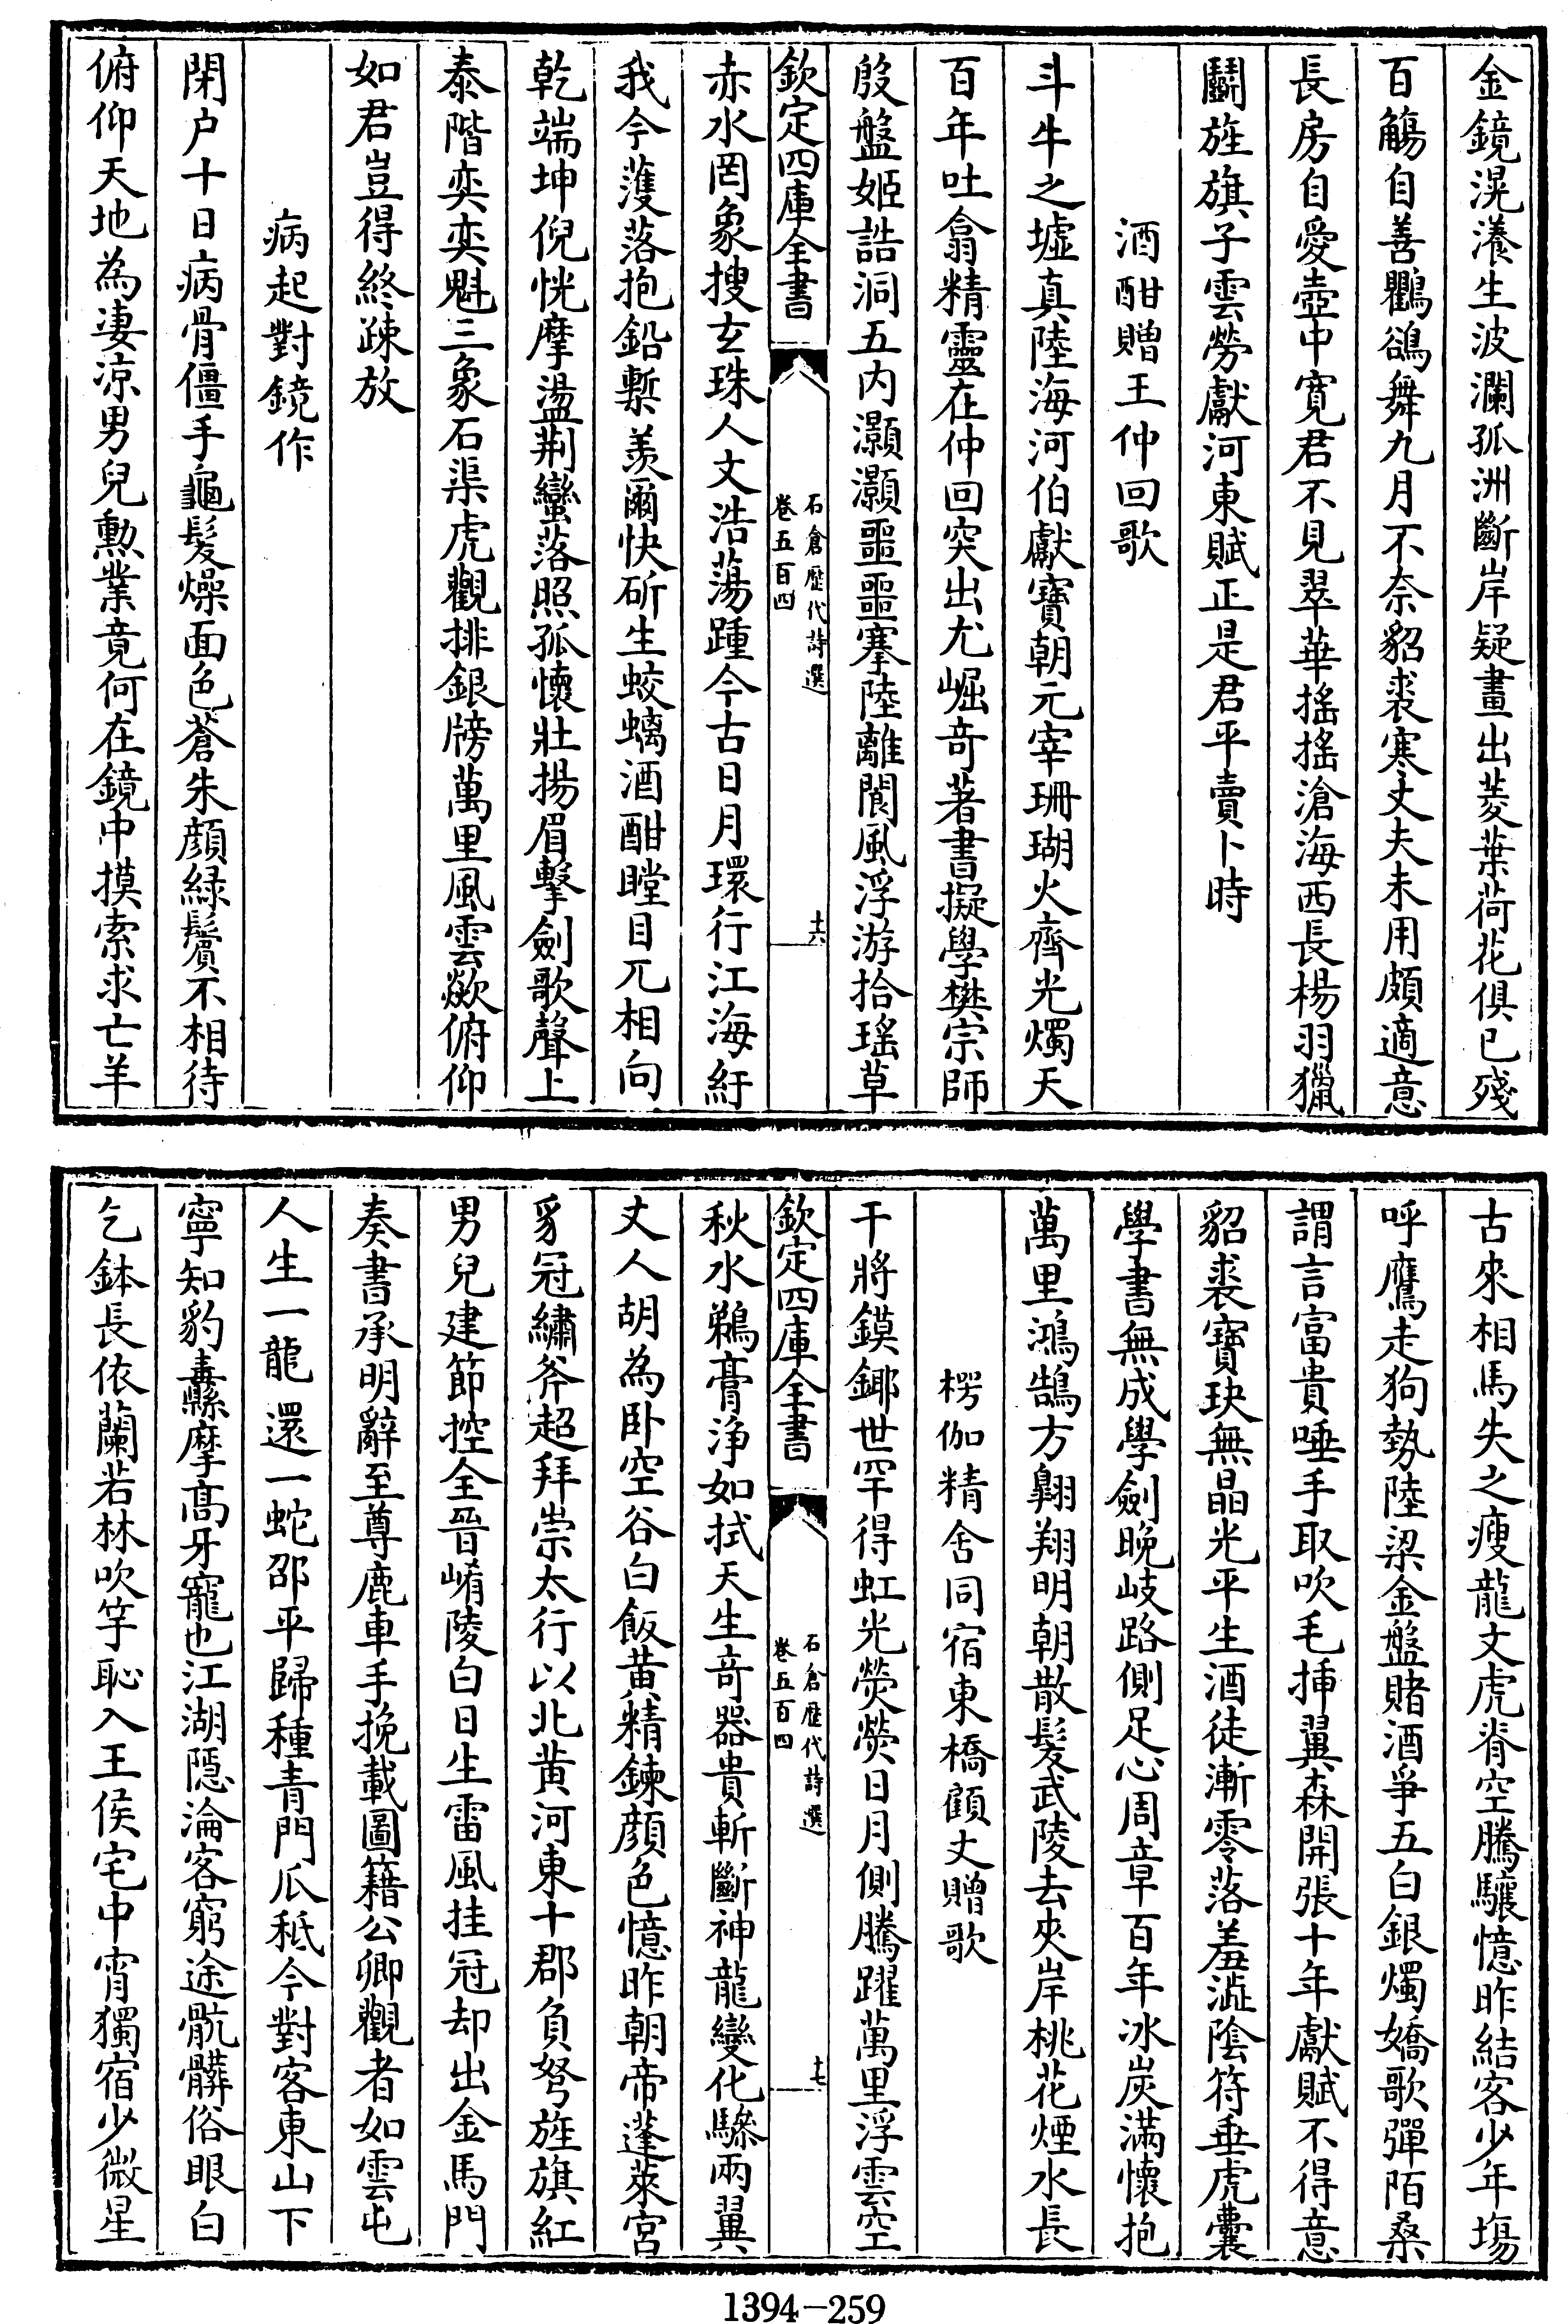 金鏡滉瀁生波瀾孤洲斷岸疑畫出菱葉荷花俱已殘
百觴自善鸜鵒舞九月不奈貂裘寒丈夫未用頗適意
長房自愛壺中寬君不見翠華搖搖滄海西長楊羽獵
鬭旌旗子雲勞獻河東賦正是君平賣卜時
酒酣贈王仲回歌
斗牛之墟真陸海河伯獻寶朝元宰珊瑚火齊光燭天
百年吐翕精靈在仲回突出尤崛奇著書擬學樊宗師
殷盤姬誥洞五内灝灝噩噩搴陸離閬風浮游拾瑤草
欽定四庫全書
石倉歷代詩選
卷五百四
十六
赤水罔象搜玄珠人文浩蕩踵今古日月環行江海紆
我今濩落抱鉛槧羨爾快斫生蛟螭酒酣瞠目兀相向
乾端坤倪恍摩盪荆蠻落照孤懷壯揚眉擊劍歌聲上
泰階奕奕魁三象石渠虎觀排銀牓萬里風雲歘俯仰
如君豈得終疎放
病起對鏡作
閉户十日病骨僵手龜髮燥面色蒼朱顔緑鬢不相待
俯仰天地為凄凉男兒勲業竟何在鏡中摸索求亡羊
古來相馬失之瘦龍文虎脊空騰驤憶昨結客少年場
呼鷹走狗勢陸梁金盤賭酒爭五白銀燭嬌歌彈陌桑
謂言富貴唾手取吹毛挿翼森開張十年獻賦不得意
貂裘寶玦無晶光平生酒徒漸零落羞澁陰符垂虎囊
學書無成學劍晚岐路側足心周章百年冰炭滿懷抱
萬里鴻鵠方翺翔明朝散髮武陵去夾岸桃花煙水長
楞伽精舍同宿東橋顧丈贈歌
干將鏌鋣世罕得虹光熒熒日月側騰躍萬里浮雲空
欽定四庫全書
石倉歷代詩選
卷五百四
十七
秋水鵜膏浄如拭天生奇器貴斬斷神龍變化驂兩翼
丈人胡為卧空谷白飯黄精鍊顔色憶昨朝帝蓬萊宮
豸冠繡斧超拜崇太行以北黄河東十郡負弩旌旗紅
男兒建節控全晉崤陵白日生雷風挂冠却出金馬門
奏書承明辭至尊鹿車手挽載圖籍公卿觀者如雲屯
人生一龍還一蛇邵平歸種青門瓜秪今對客東山下
寧知豹纛縣摩髙牙寵也江湖隠淪客窮途骯髒俗眼白
乞鉢長依蘭若林吹竽恥入王侯宅中宵獨宿少微星
1394-259